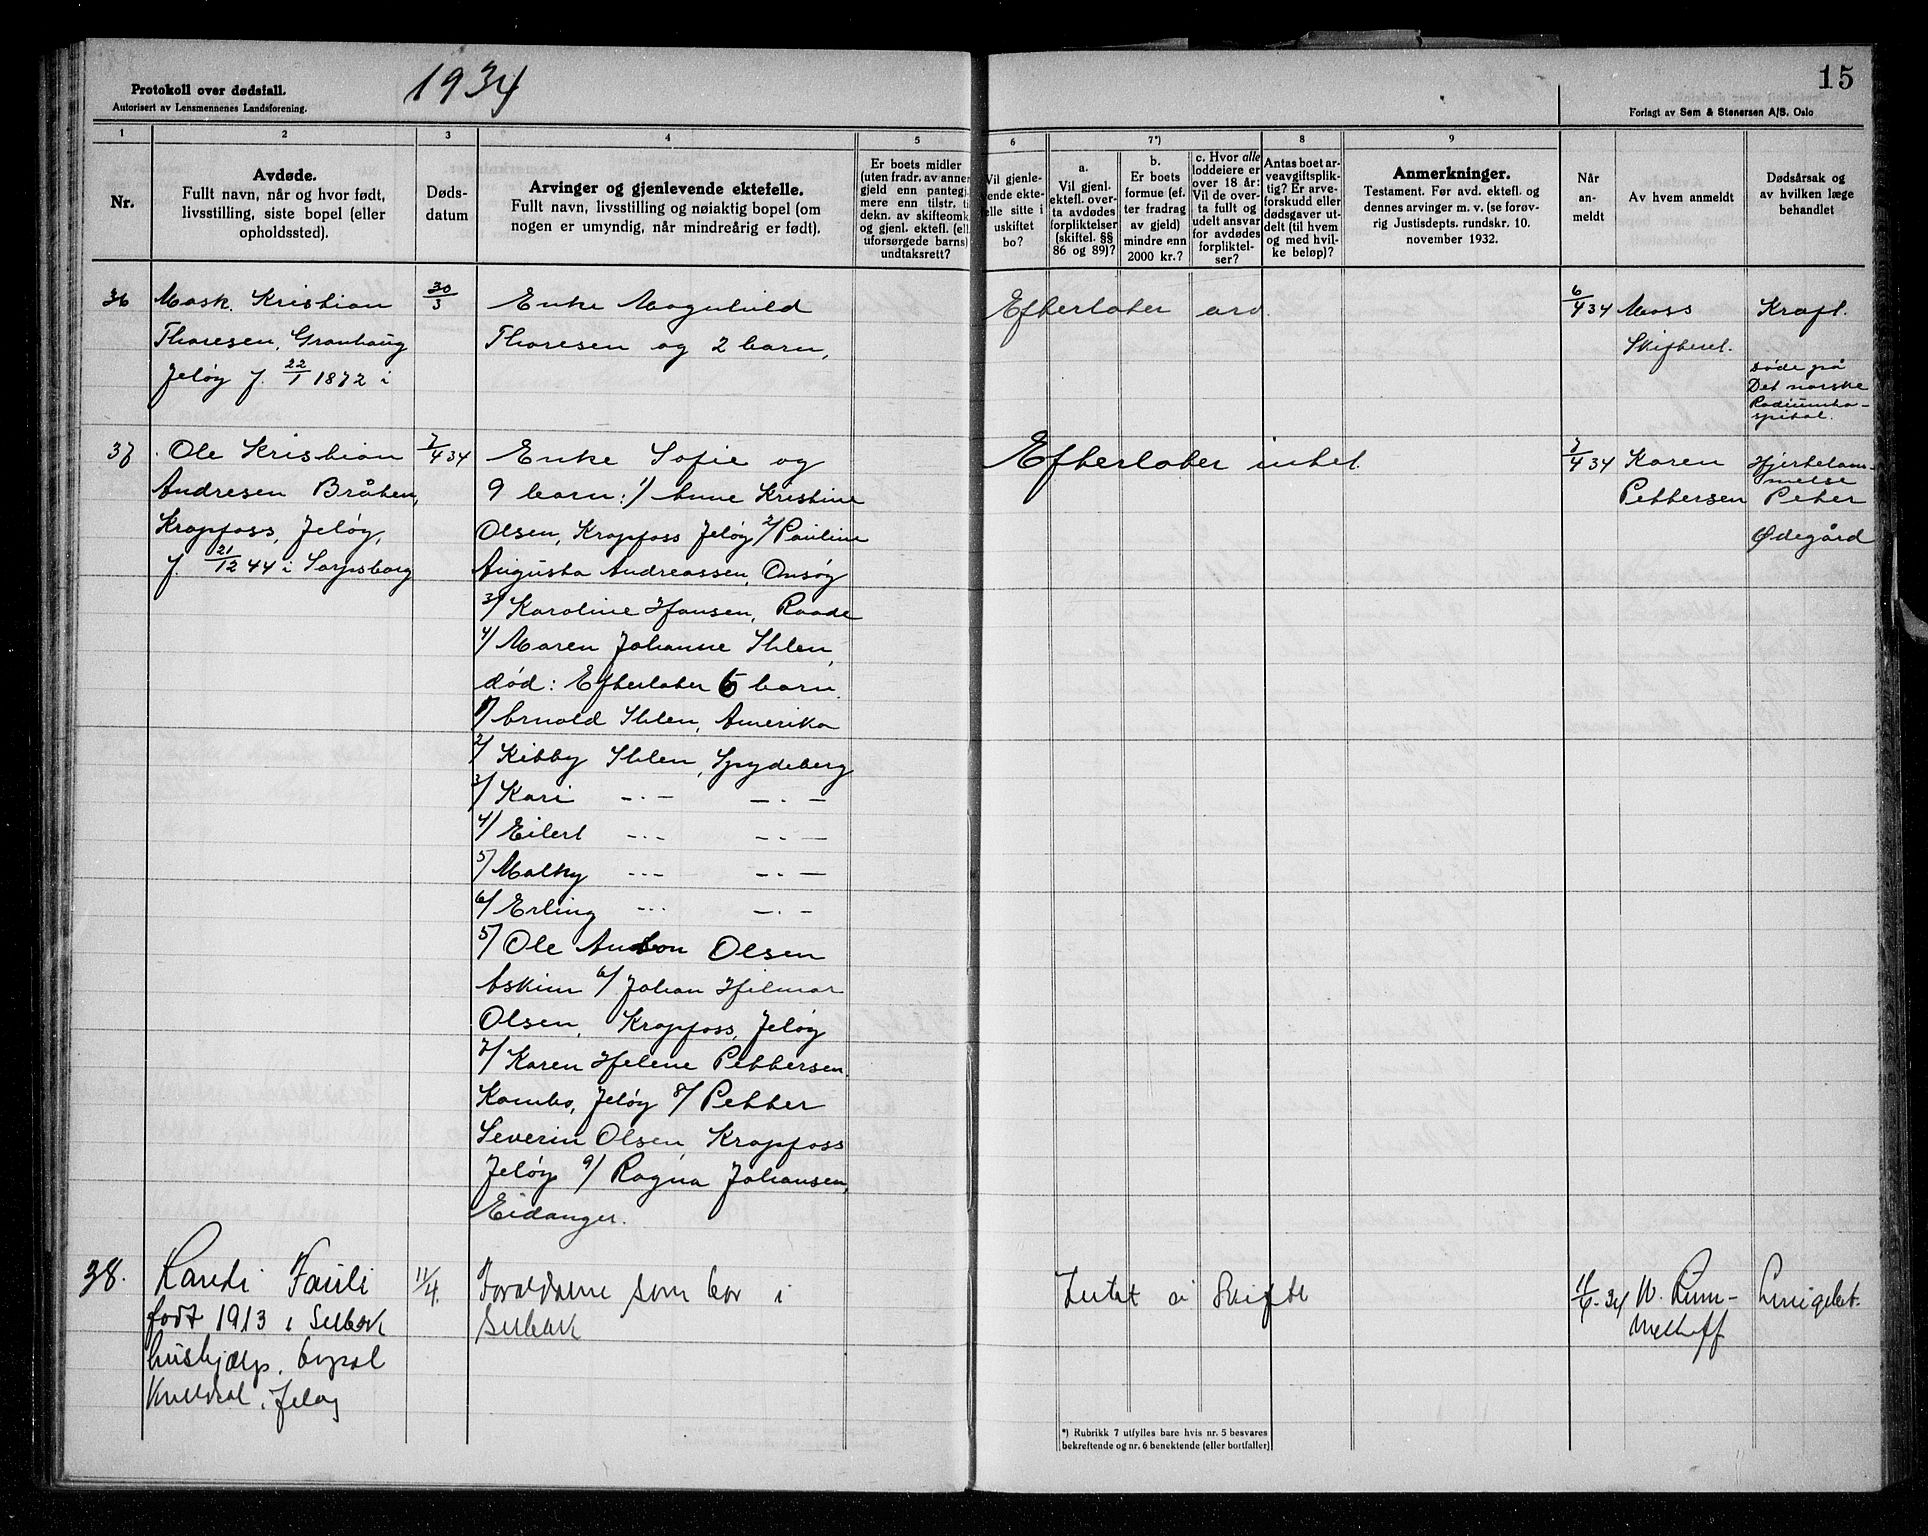 Protokoll over dødsfall.
Autorisert av Lensmennenes Landsforening.
1934
15
Forlagt av Sem & Stenersen A/S. Oslo
1 2 3 4 5 6 7*) 8 9
Nr.
Avdøde.
Fullt navn, når og hvor født,
livsstilling, siste bopel (eller
opholdssted).
Døds-
datum
Arvinger og gjenlevende ektefelle.
Fullt navn, livsstilling og nøiaktig bopel (om
nogen er umyndig, når mindreårig er født).
Er boets midler
(uten fradr. av annen
gjeld enn pantegj.
mere enn tilstr. ti
dekn. av skifteomk.
og gjenl. ektefl. (ell.
uforsørgede barns)
undtaksrett?
Vil gjenle-
ende ekte-
elle sitte i
uskiftet
bo?
a.
Vil gjenl.
ektefl. over-
ta avdødes
forpliktelser
(skiftel. §§
86 og 89)?
b.
Er boets
formue (ef-
ter fradrag
av gjeld)
mindre enn
2000 kr.?
c. Hvor alle
loddeiere er
over 18 år:
Vil de over-
ta fullt og
udelt ansvar
for avdødes
forpliktel-
ser?
Antas boet ar-
veavgiftsplik-
tig? Er arve-
forskudd eller
dødsgaver ut-
delt (til hvem
og med hvil-
ke beløp)?
Anmerkninger.
Testament. Før avd. ektefl. og
dennes arvinger m. v. (se forøv-
rig Justisdepts. rundskr. 10.
november 1932.
Når
an-
meldt
Av hvem anmeldt
Dødsårsak og
av hvilken læge
behandlet
36
Mask. Kristian
Thoresen, Granhaug
Jeløy f. 22/1 1872 i
30/3
Enke Magnhild
Thoresen og 2 barn,
Efterlater arv.
6/4 34
Moss
Skifteret.
Kræft.
Døde på
Det norske
Radiumho-
spital.
37
Ole Kristian
Andresen Bråten,
Krapfoss, Jeløy,
f. 21/12 44 i Sarpsborg
7/4 34
Enke Sofie og
9 barn: 1/ Anne Kristine
Olsen, Krapfoss Jeløy 2/ Pauline
Augusta Andreassen, Onsøy
3/ Karoline Hansen, Raade
4/ Maren Johanne Ihlen,
død: Efterlater 6 barn.
1/ Arnold Ihlen, Amerika
2/ Kitty Ihlen, Spydeberg
3/ Kari -.- -.-
4/ Eilert -.- -.-
5/ Malky -.- -.-
6/ Erling -.- -.-
5/ Ole Anton Olsen
Askim 6/ Johan Hilmar
Olsen, Krapfoss, Jeløy
7/ Karen Helene Pettersen,
Kambo, Jeløy 8/ Petter
Severin Olsen, Krapfoss
Jeløy 9/ Ragna Johansen,
Eidanger.
Efterlater intet.
7/4 34
Karen
Pettersen
Hjertelam-
melse
Peter
Ødegård
38.
Randi Fauli
født 1913 i Selbak
hushjælp, bopæl
Jeløy
11/4.
Forældrene som bor i
Selbak
Intet å skifte
34
W.